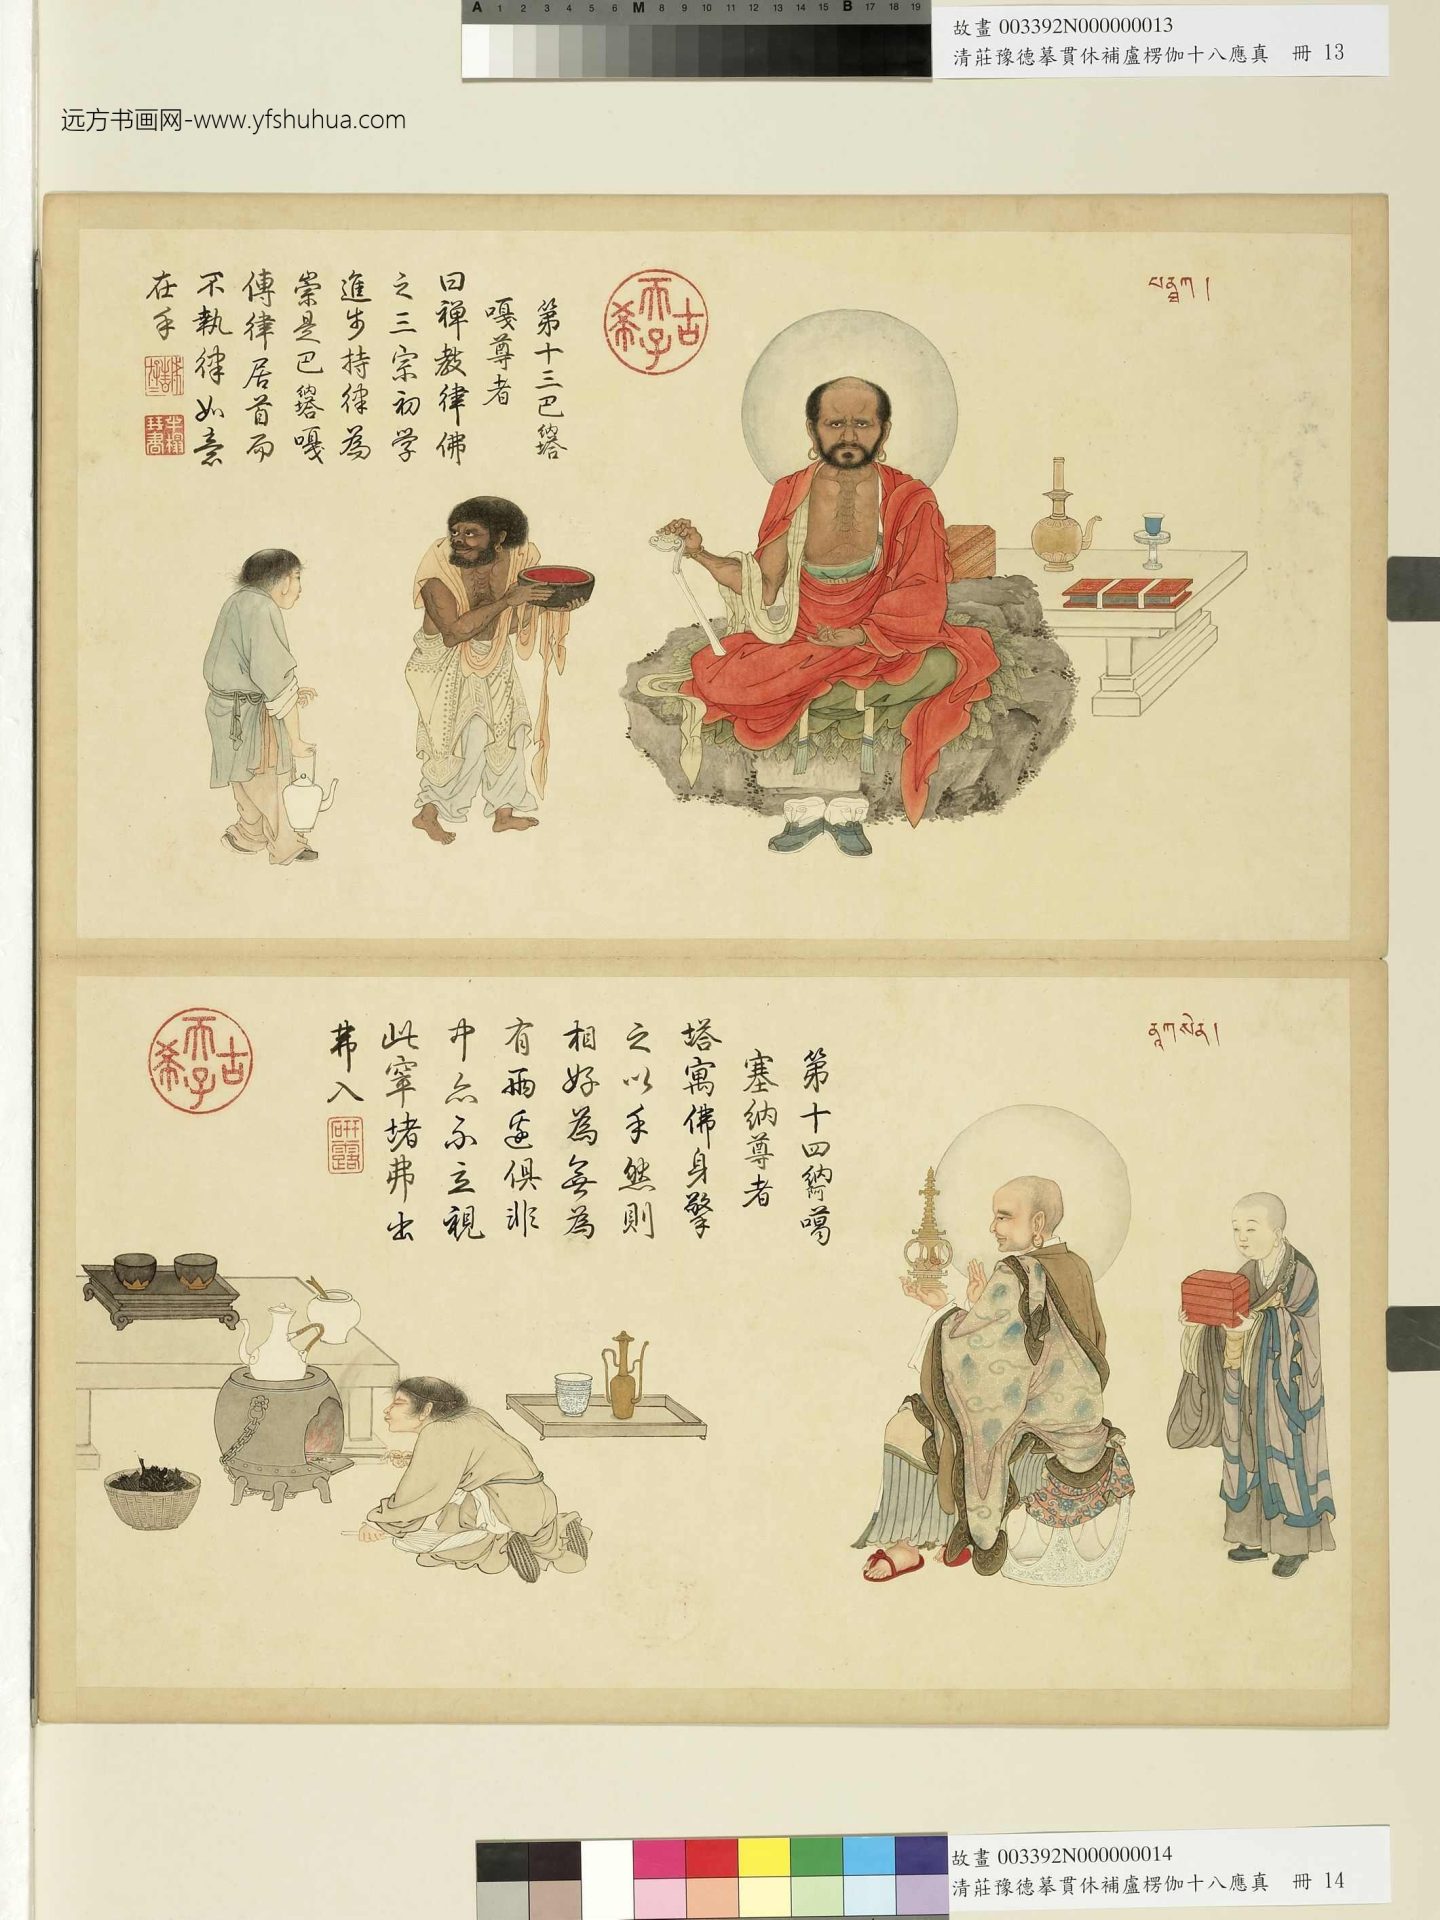 A 1 2 3 4 5 6 M 8 9 10 11 12 13 14 15 B 17 18 19
故畫 003392N000000013
清莊豫德摹貫休補盧楞伽十八應真 冊 13
远方书画网-www.yfshuhua.com
པནྠཀ།
古希天子
第十三巴納塔
嘎尊者
曰禅教律佛
之三宗初学
進步持律為
崇是巴納塔嘎
傳律居首而
不執律如意
在手
ནཱཀསེན།
第十四納阿噶
塞納尊者
塔寓佛身擎
之以手然則
相好為無為
有兩邊俱非
中亦不立視
此窣堵弗出
弗入
古希天子
故畫 003392N000000014
清莊豫德摹貫休補盧楞伽十八應真 冊 14